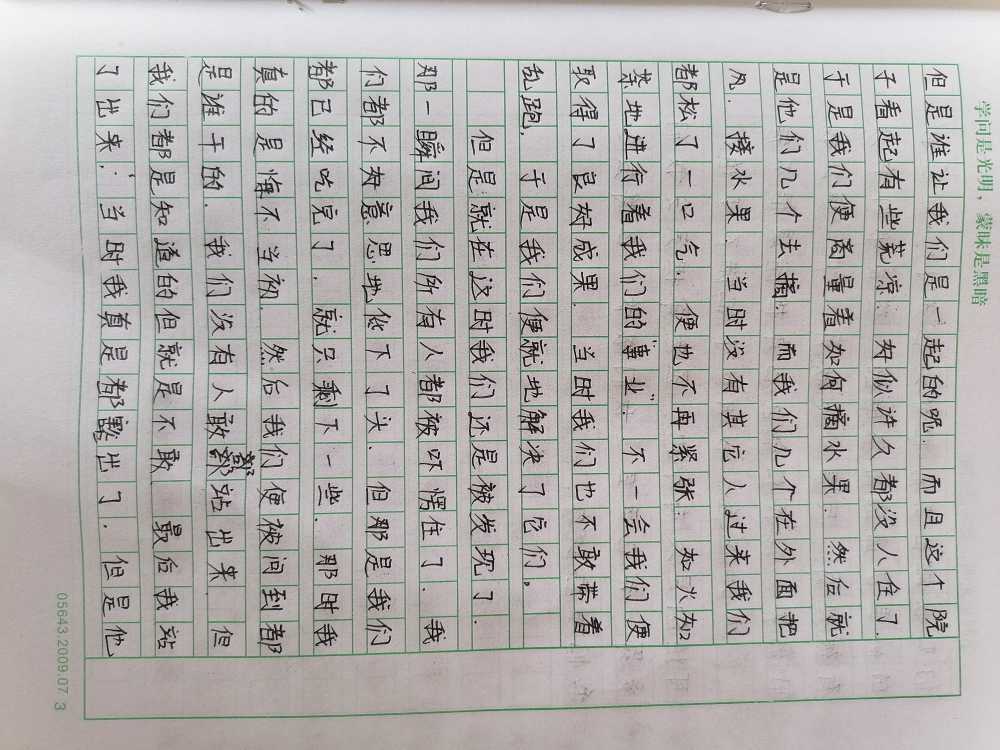 学问是光明，蒙昧是黑暗
但是谁让我们是一起的呢.而且这个院
子看起有些荒凉.好似许久都没人住了.
于是我们便商量着如何摘水果.然后就
是他们几个去摘.而我们几个在外面把
风.接水果.当时没有其它人过来我们
都松了一口气.便也不再紧张.如火如
荼地进行着我们的"事业".不一会我们便
取得了良好成果.当时我们也不敢带着
乱跑.于是我们便就地解决了它们。
但是就在这时我们还是被发现了.
那一瞬间我们所有人都被吓愣住了.我
们都不好意思地低下了头.但那是我们
都已经吃完了.就只剩下一些.那时我
真的是悔不当初.然后我们便被问到都
是谁干的.我们没有人敢都站出来.但
我们都是知道的但就是不敢.最后我站
了出来.当时我真是都豁出了.但是他
05643.2009.07.3